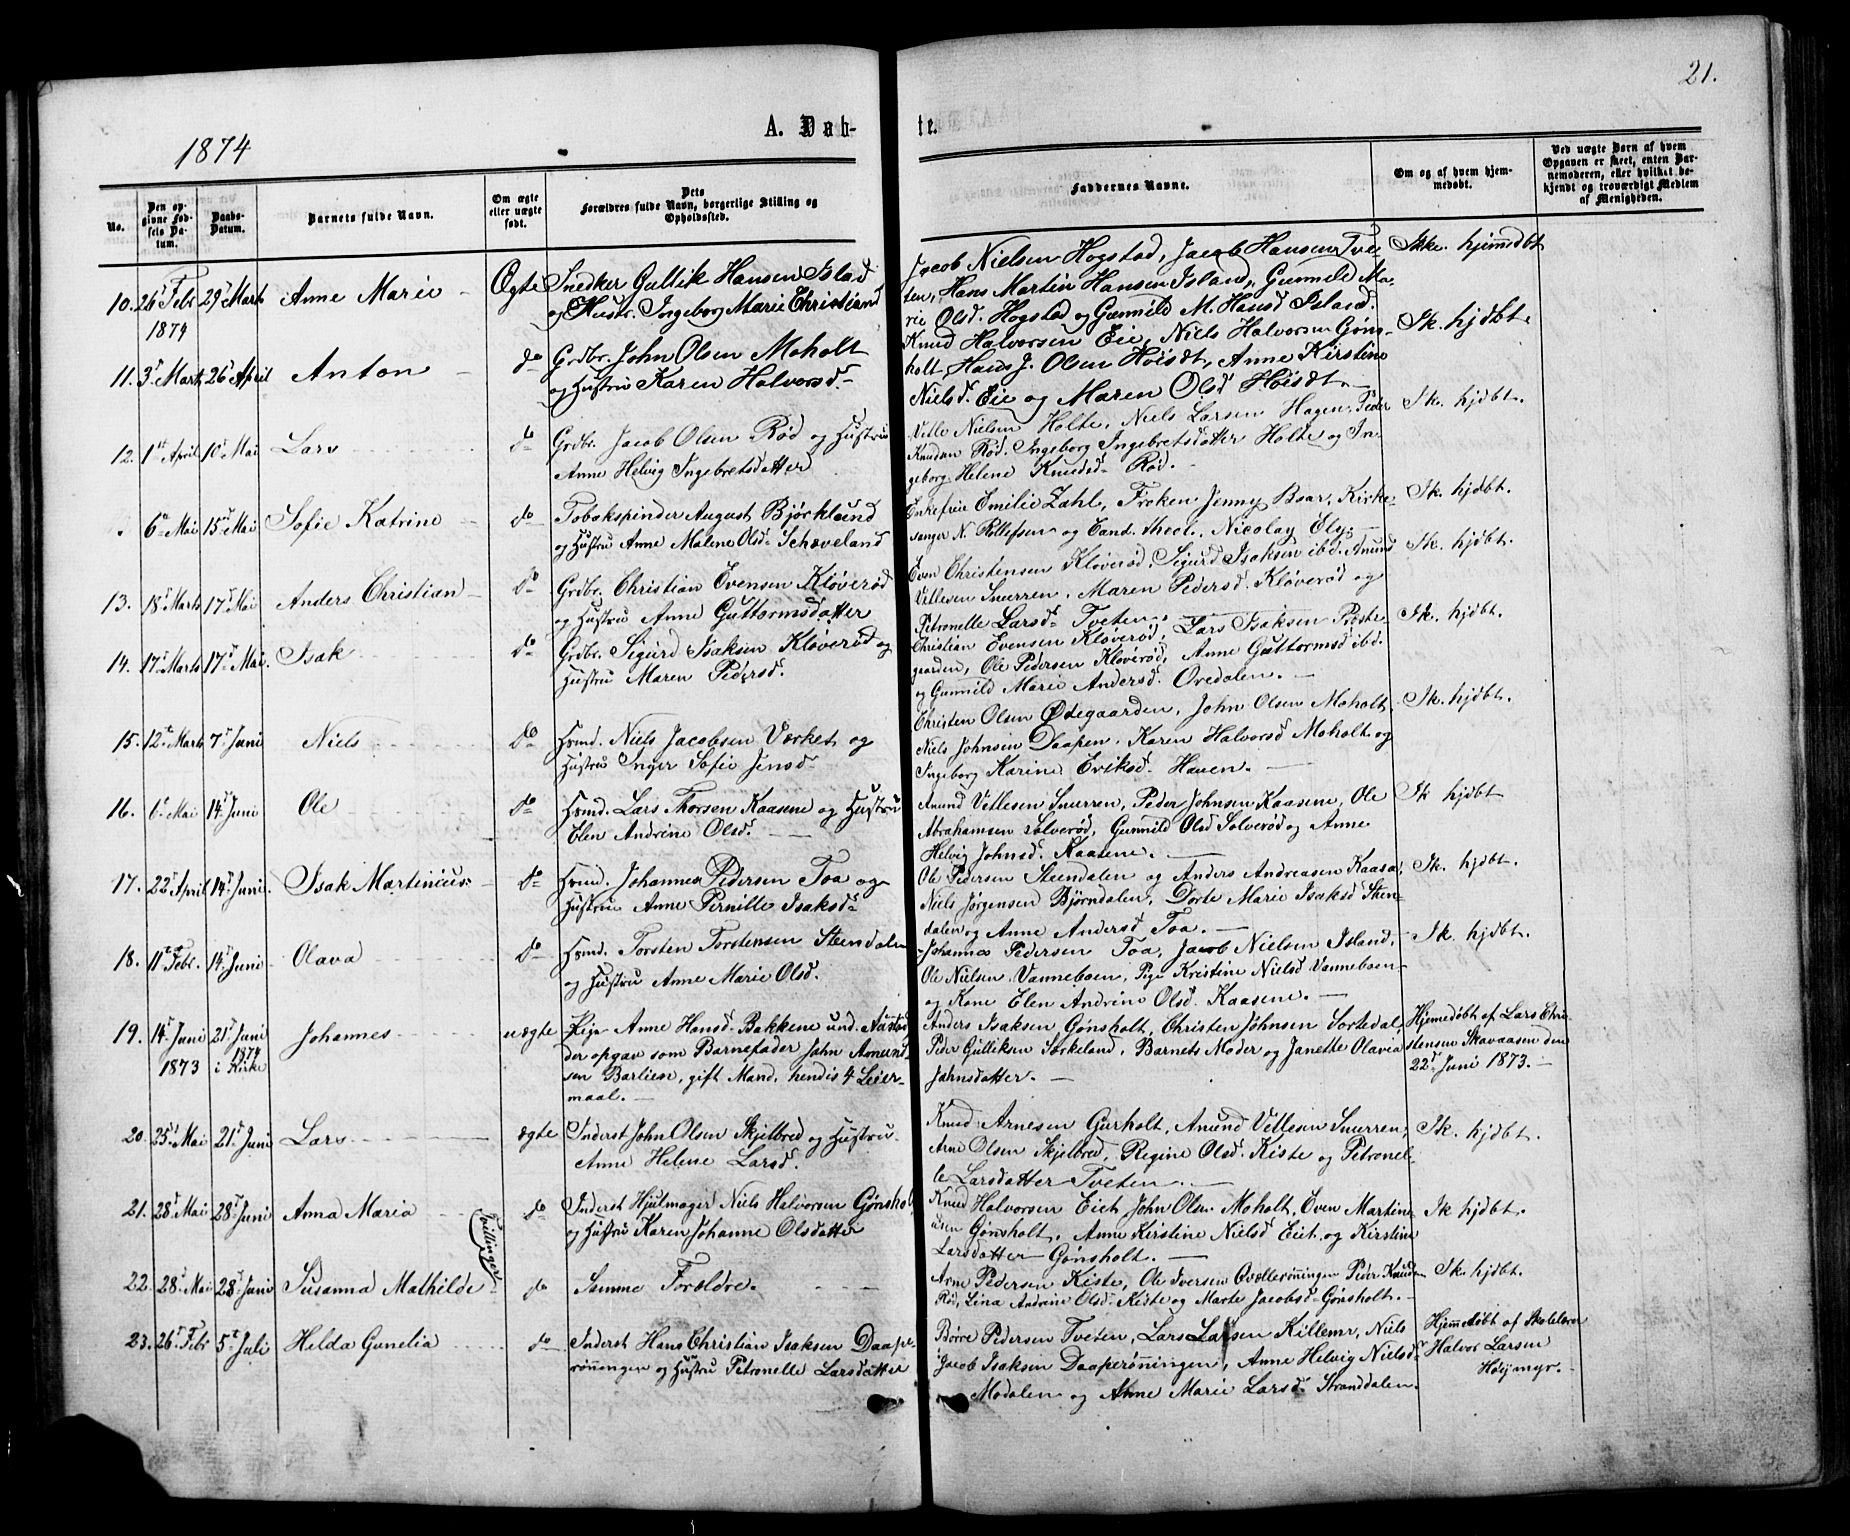 21.
1874
A. Døb-
te.
No.
Den op-
givne Fød-
sels Da-
tum.
Daabs-
Datum.
Barnets fulde Navn.
Om ægte
eller uægte
født.
Dets
Forældres fulde Navn, borgerlige Stilling og
Opholdssted.
Faddernes Navne.
Om og af hvem hjem-
medøbt.
Ved uægte Børn af hvem
Opgaven er skeet, enten Bar-
nemoderen, eller hvilket be-
kjendt og troværdigt Medlem
af Menigheden.
10. 26' Febr 1874 29' Marts Anne Marie Ægte
Snedker Gullik Hansen Island
og Hustr. Ingeborg Marie Christiand
Jacob Nielsen Hogstad, Jacob Hansen Tve-
ten, Hans Martin Hansen Island, Gunnild Ma-
rie Olsd. Hogstad og Gunnild M. Hansd Island.
Ikke hjemmedøbt
11. 3' Marts 26' April Anton do
Grdbr. John Olsen Moholt
og Hustru Karen Halvorsd.
Knud Halvorsen Eie, Niels Halvorsen Gøns-
holt, Hans J. Olsen Høisdt, Anne Kirstine
Nielsd. Eie og Maren Olsd Høisdt.
Ik. hjdbt.
12. 1st April 10' Mai Lars do
Grdbr. Jacob Olsen Rød og Hustru
Anne Helvig Ingebretsdatter
Nielsen Holte, Niels Larsen Hagen, Peder
Knudsen Rød, Ingeborg Ingebretsdatter Holte og In-
geborg Helene Knudsd. Rød.
Ik. hjdbt.
6' Mai 15' Mai Sofie Katrine do
Tobakspinder August Bjørklund
og Hustru Anne Malene Olsd. Schæveland
Enkefrue Emilie Zahl, Frøken Jenny Boar, Kirke-
sanger N. Rollefsen og Cand. theol. Nicolay Ely.
Ik. hjdbt.
13. 18' Marts 17' Mai Anders Christian do
Grdbr. Christian Evensen Kløverød
og Hustru Anne Guttormsdatter
Even Christensen Kløverød, Sigurd Isaksen ibd. Amund
Vellesen Snurren, Maren Pedersd. Kløverød og
Petronelle Larsd. Tveten.
Ik. hjdbt.
14. 17' Marts 17' Mai. Isak do
Grdbr. Sigurd Isaksen Kløverød og
Hustru Maren Pedersd.
Christian Evensen Kløverød, Lars Isaksen Præste-
gaarden, Ole Pedersen Kløverød, Anne Guttormsd ibd.
og Gunnild Marie Andersd. Ovedalen.
Ik. hjdbt.
15. 12' Marts 7' Juni Niels do
Hsmd. Niels Jacobsen Værket og
Hustru Inger Sofie Jensd
Christen Olsen Ødegaarden, John Olsen Moholt
Niels Johnsen Daapen, Karen Halvorsd Moholt og
Ingeborg Karine Eriksd. Haven.
Ik. hjdbt.
16. 6' Mai 14' Juni Ole do
Hsmd. Lars Thorsen Kaasene og Hustru
Elen Andrine Olsd.
Amund Vellesen Snurren, Peder Johnsen Kaasene, Ole
Abrahamsen Solverød, Gunnild Olsd Solverød og Anne
Helvig Johnsd. Kaasene.
Ik hjdbt
17. 22' April 14' Juni Isak Martinius do
Hsmd. Johannes Pedersen Toa og
Hustru Anne Pernille Isaksd
Ole Pedersen Steendalen og Anders Andreasen Kaasa,
Niels Jørgensen Bjørndalen, Dorte Marie Isaksd Sten-
dalen og Anne Andersd Toa.
Ik. hjdbt.
18. 11' Febr. 14' Juni Olava do
Hsmd. Torsten Torstensen Steendalen
og Hustru Anne Marie Olsd.
Johannes Pedersen Toa, Jacob Nielsen Island,
Ole Nielsen Vanneboen, Pige Kristine Nielsd Vanneboen
og Kone Elen Andrine Olsd. Kaasene.
Ik. hjdbt.
19. 14' Juni 1873 21' Juni 1874 i Kirke Johannes uægte
Pige Anne Hansd. Bakkene und.
der opgav som Barnefader John Amund-
sen Barlien, gift Mand, hendes 4 Leier-
maal.
Anders Isaksen Gønsholt, Christen Johnsen Sortedal,
Peder Gulliksen Sorkeland, Barnets Moder og Janette Olavia
Jahnsdatter.
Hjemmedøbt af Lars Chri-
stensen Skavaasen den
22' Juni 1873.
20. 25' Mai 21' Juni Lars ægte
Inderst John Olsen Skjelbred og Hustru
Anne Helene Larsd.
Knud Arnesen Gurholt, Amund Vellesen Snurren,
Arne Olsen Skjelbred, Regine Olsd. Kiste og Petronel-
le Larsdatter Tveten.
Ik. hjdbt.
21. 28' Mai 28' Juni Anna Maria do
Tvillinger
Inderst Hjulmager Niels Halvorsen Gønsholt
og Hustru Karen Johanne Olsdatter
Knud Halvorsen Eiet, John Olsen Moholt, Even Martin-
sen Gønsholt, Anne Kirstine Nielsd Eiet og Kirstine
Larsdatter Gønsholt.
Ik hjdbt.
22. 28' Mai 28' Juni Susanna Mathilde do
Samme Forældre.
Arne Pedersen Kiste, Ole Iversen Qvellerønningen Peder Knudsen
Rød, Lina Andrine Olsd. Kiste og Marte Jacobsd Gønsholt.
Ik. hjdbt.
23. 26' Febr 5' Juli Hilda Gunelia do
Inderst Hans Christian Isaksen Daape-
rønningen og Hustru Petronelle Larsdatter
Børre Pedersen Tveten, Lars Larsen Killemr, Niels
Jacob Isaksen Daaperøningen, Anne Helvig Nielsd
Modalen og Anne Marie Larsd. Stranddalen.
Hjemmedøbt af Skolelærer
Halvor Larsen
Høymyr.